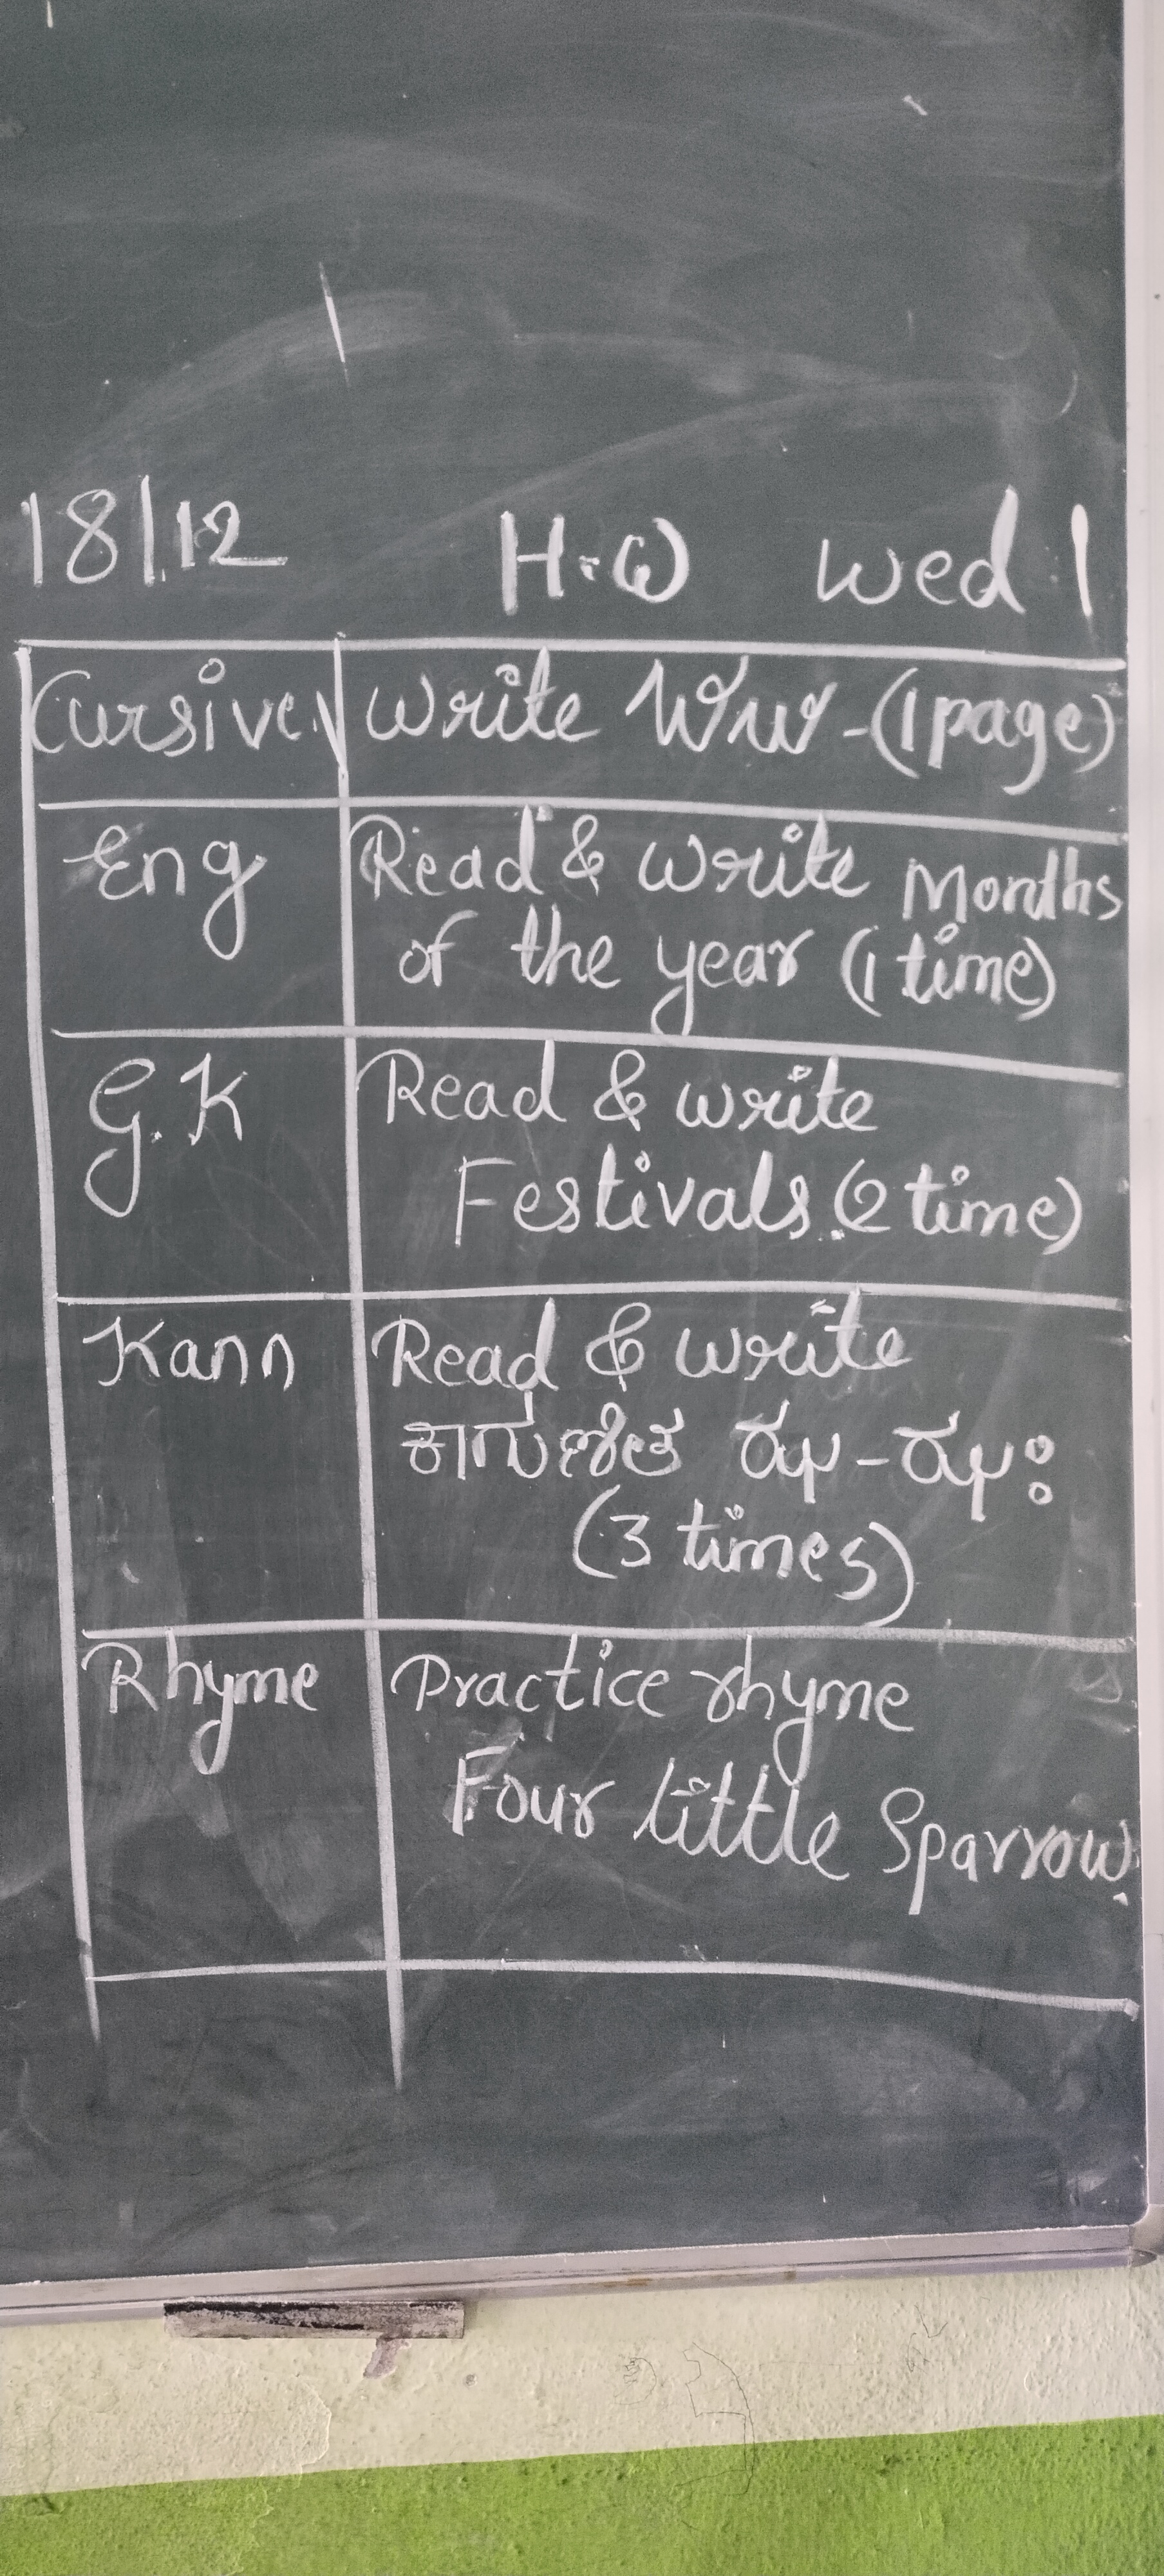 18/12 H.W Wed
Cursive Write Ww - (1 page)
Eng Read & write Months
of the year (1 time)
G.K Read & write
Festivals (2 time)
Kann Read & write
ಕಾಗುಣಿತ
(3 times)
Rhyme Practice rhyme
Four little Sparrow